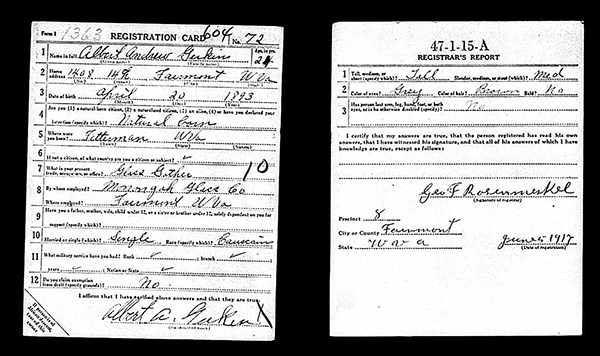 Form 1 1363 REGISTRATION CARD 604 No. 72
1 Name in full Albert Andrew Age, in yrs. 24
2 Home address 1408 14½ Fairmont W Va
3 Date of birth April 20 1893
(Month) (Day) (Year)
4 Are you (1) a natural-born citizen, (2) a naturalized citizen, (3) an alien, (4) or have you declared your
intention (specify which)? Natural Born
5 Where were you born? W Va
6 If not a citizen, of what country are you a citizen or subject? ✓
7 What is your present trade, occupation, or office? Glass Gather 10
8 By whom employed? Monongah Glass Co
Where employed? Fairmont W Va
9 Have you a father, mother, wife, child under 12, or a sister or brother under 12, solely dependent on you for
support (specify which)?
10 Married or single (which)? Single Race (specify which)? Caucasin
11 What military service have you had? Rank ✓ ; branch ✓
years ✓ ; Nation or State ✓
12 Do you claim exemption from draft (specify grounds)? No
I affirm that I have verified above answers and that they are true.
Albert A.
47-1-15-A
REGISTRAR'S REPORT
1 Tall, medium, or short (specify which)? Tall Slender, medium, or stout (which)? Med
2 Color of eyes? Grey Color of hair? Brown Bald? No
3 Has person lost arm, leg, hand, foot, or both
eyes, or is he otherwise disabled (specify)? No
I certify that my answers are true, that the person registered has read his own
answers, that I have witnessed his signature, and that all of his answers of which I have
knowledge are true, except as follows:
Geo F Rosenmerkel
(Signature of registrar)
Precinct 8
City or County Fairmont
State W Va June 5 1917
(Date of registration)